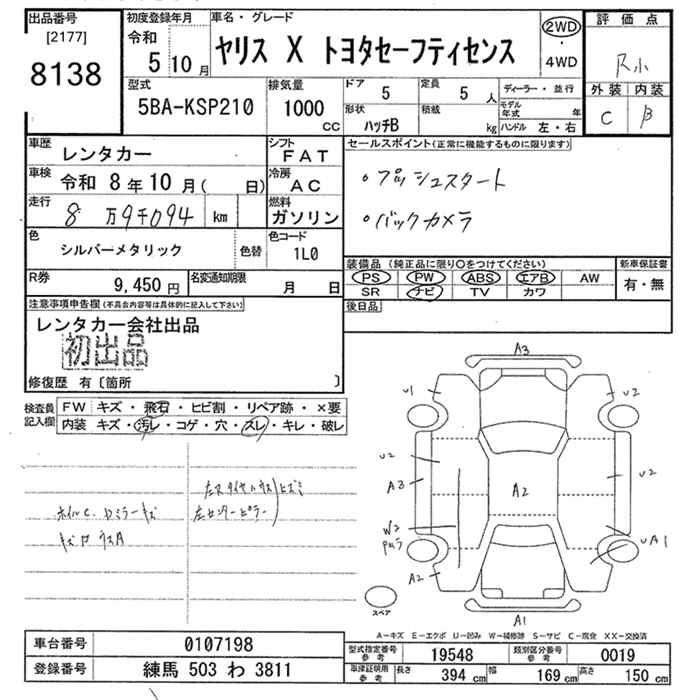 出品番号
[2177]
8138
初度登録年月
令和
5 10 月
車名・グレード
ヤリス X トヨタセーフティセンス
2WD
・
4WD
評価点
R小
外装 内装
C B
型式
5BA-KSP210
排気量
1000
CC
ドア
5
定員
5 人
形状
ハッチB
積載
kg
ディーラー・並行
モデル年式
年
ハンドル 左・右
車歴
レンタカー
シフト
FAT
車検 令和 8年10月( 日)
冷房
AC
走行 8 万9千094 km
燃料
ガソリン
色
シルバーメタリック
色替
色コード
1L0
R券
9,450 円
名変通知期限
月 日
セールスポイント(正常に機能するものに限ります)
・プッシュスタート
・バックカメラ
装備品 (純正品に限り○をつけてください)
PS PW ABS エアB AW
SR ナビ TV カワ
新車保証書
有・無
後日品
注意事項申告欄(不具合内容等は具体的に記入して下さい)
レンタカー会社出品
初出品
修復歴 有〔箇所 〕
検査員記入欄
FW キズ・飛石・ヒビ割・リペア跡・×要
内装 キズ・汚レ・コゲ・穴・スレ・キレ・破レ
ヒズミ
左センターピラー
A3
U1
U2
U2
U2
A3
A2
W2
UA1
A2
A1
スペア
A-キズ E-エクボ U-凹み W-補修跡 S-サビ C-腐食 XX-交換済
車台番号
0107198
登録番号
練馬 503 わ 3811
型式指定番号
参考
19548
類別区分番号
参考
0019
車庫証明用
参考
長さ
394 cm
幅
169 cm
高さ
150 cm